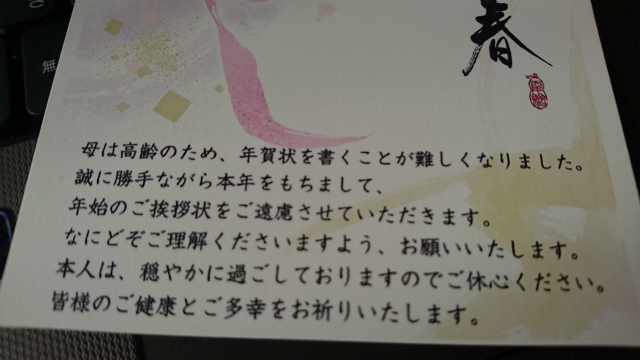 春
無
母は高齢のため、年賀状を書くことが難しくなりました。
誠に勝手ながら本年をもちまして、
年始のご挨拶状をご遠慮させていただきます。
なにどぞご理解くださいますよう、お願いいたします。
本人は、穏やかに過ごしておりますのでご休心ください。
皆様のご健康とご多幸をお祈りいたします。